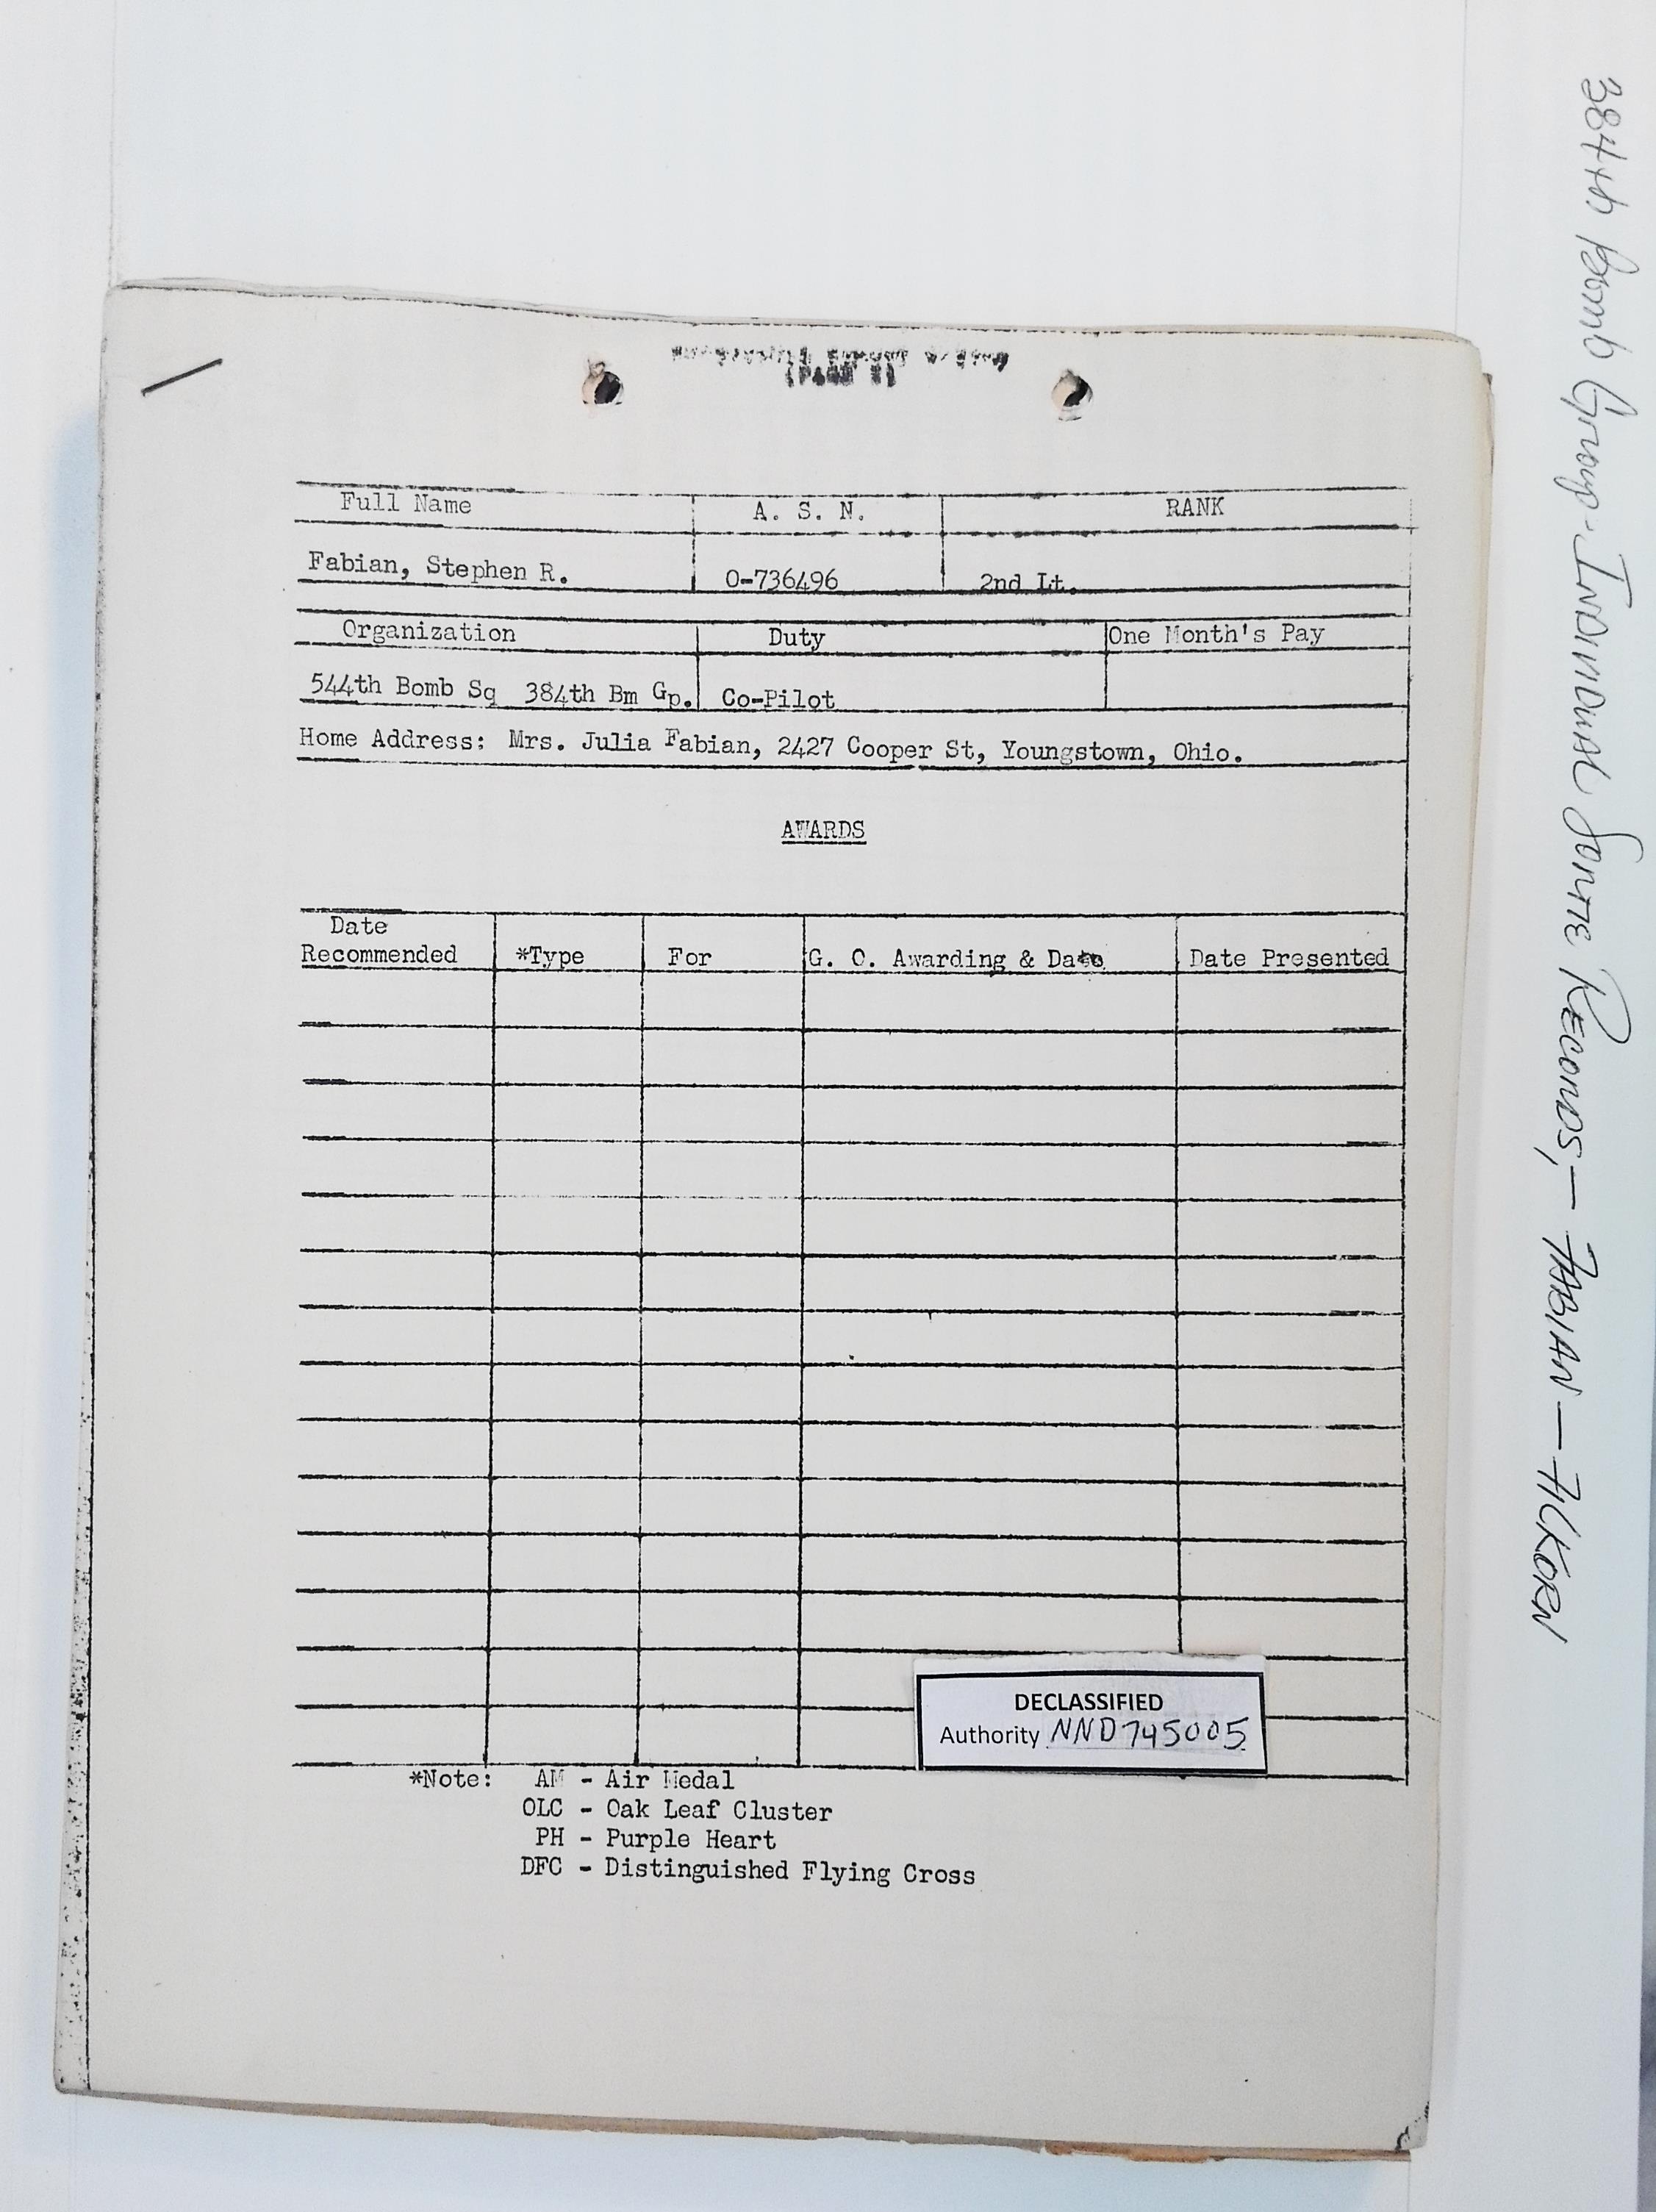 Full Name A. S. N. RANK
Fabian, Stephen R. O-736496 2nd Lt.
Organization Duty One Month's Pay
544th Bomb Sq 384th Bm Gp. Co-Pilot
Home Address: Mrs. Julia Fabian, 2427 Cooper St, Youngstown, Ohio.
AWARDS
Date
Recommended *Type For G. O. Awarding & Date Date Presented
DECLASSIFIED
Authority NND745005
*Note: AM - Air Medal
OLC - Oak Leaf Cluster
PH - Purple Heart
DFC - Distinguished Flying Cross
384th Bomb Group - INDIVIDUAL SORTIE RECORDS, - FABIAN - FILKORN